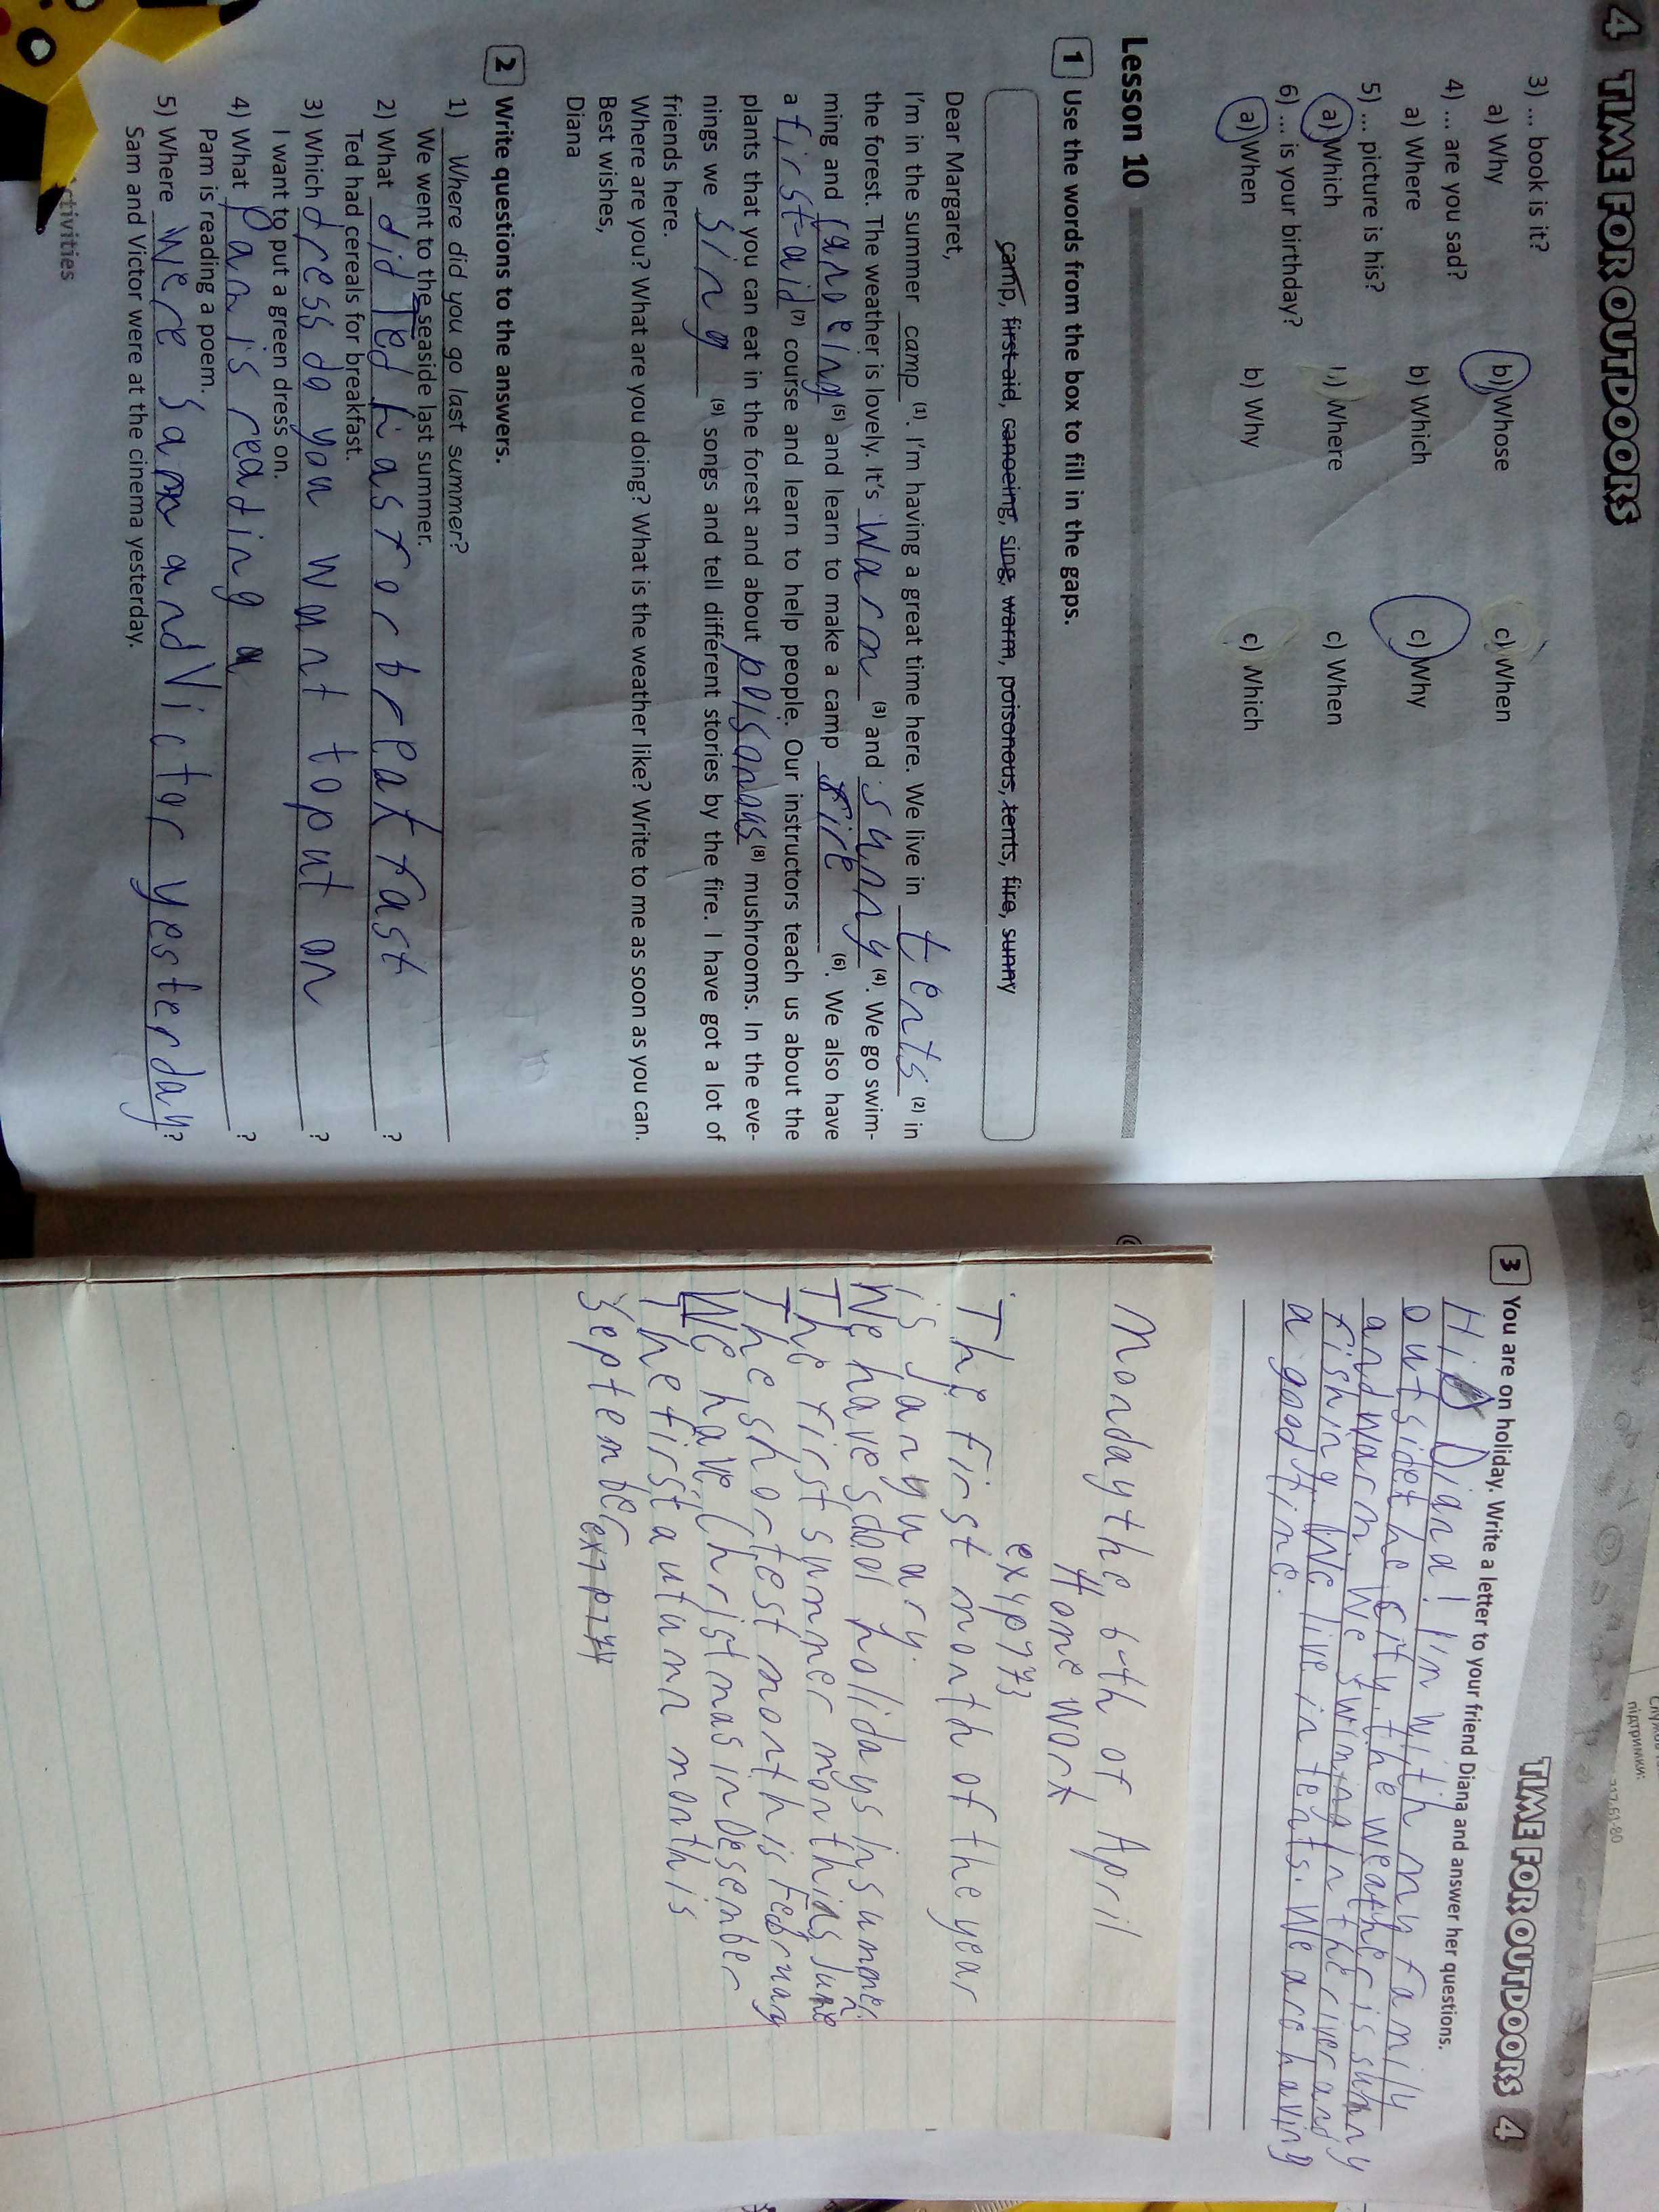 4 TIME FOR OUTDOORS
3) ... book is it?
a) Why b) Whose c) When
4) ... are you sad?
a) Where b) Which c) Why
5) ... picture is his?
a) Which b) Where c) When
6) ... is your birthday?
a) When b) Why c) Which
Lesson 10
1 Use the words from the box to fill in the gaps.
camp, first-aid, canoeing, sing, warm, poisonous, tents, fire, sunny
Dear Margaret,
I'm in the summer camp (1). I'm having a great time here. We live in tents (2) in
the forest. The weather is lovely. It's warm (3) and sunny (4). We go swim-
ming and canoeing (5) and learn to make a camp fire (6). We also have
a first-aid (7) course and learn to help people. Our instructors teach us about the
plants that you can eat in the forest and about poisonous (8) mushrooms. In the eve-
nings we sing (9) songs and tell different stories by the fire. I have got a lot of
friends here.
Where are you? What are you doing? What is the weather like? Write to me as soon as you can.
Best wishes,
Diana
2 Write questions to the answers.
1) Where did you go last summer?
We went to the seaside last summer.
2) What did Ted has for breakfast ?
Ted had cereals for breakfast.
3) Which dress do you want to put on ?
I want to put a green dress on.
4) What Pam is reading a ?
Pam is reading a poem.
5) Where were Sam and Victor yesterday ?
Sam and Victor were at the cinema yesterday.
ctivities
TIME FOR OUTDOORS 4
3 You are on holiday. Write a letter to your friend Diana and answer her questions.
Hi Diana! I'm with my family
outside the city. the weather is sunny
and warm We swiming in the river and
fishing We live in tents. We are having
a good time.
Monday the 6-th of April
Home work
ex 4 p 173
The first month of the year
is January.
We have school holidays in summer.
The first summer month is June
The shortest month is February
We have Christmas in Desember
The first autumn month is
September